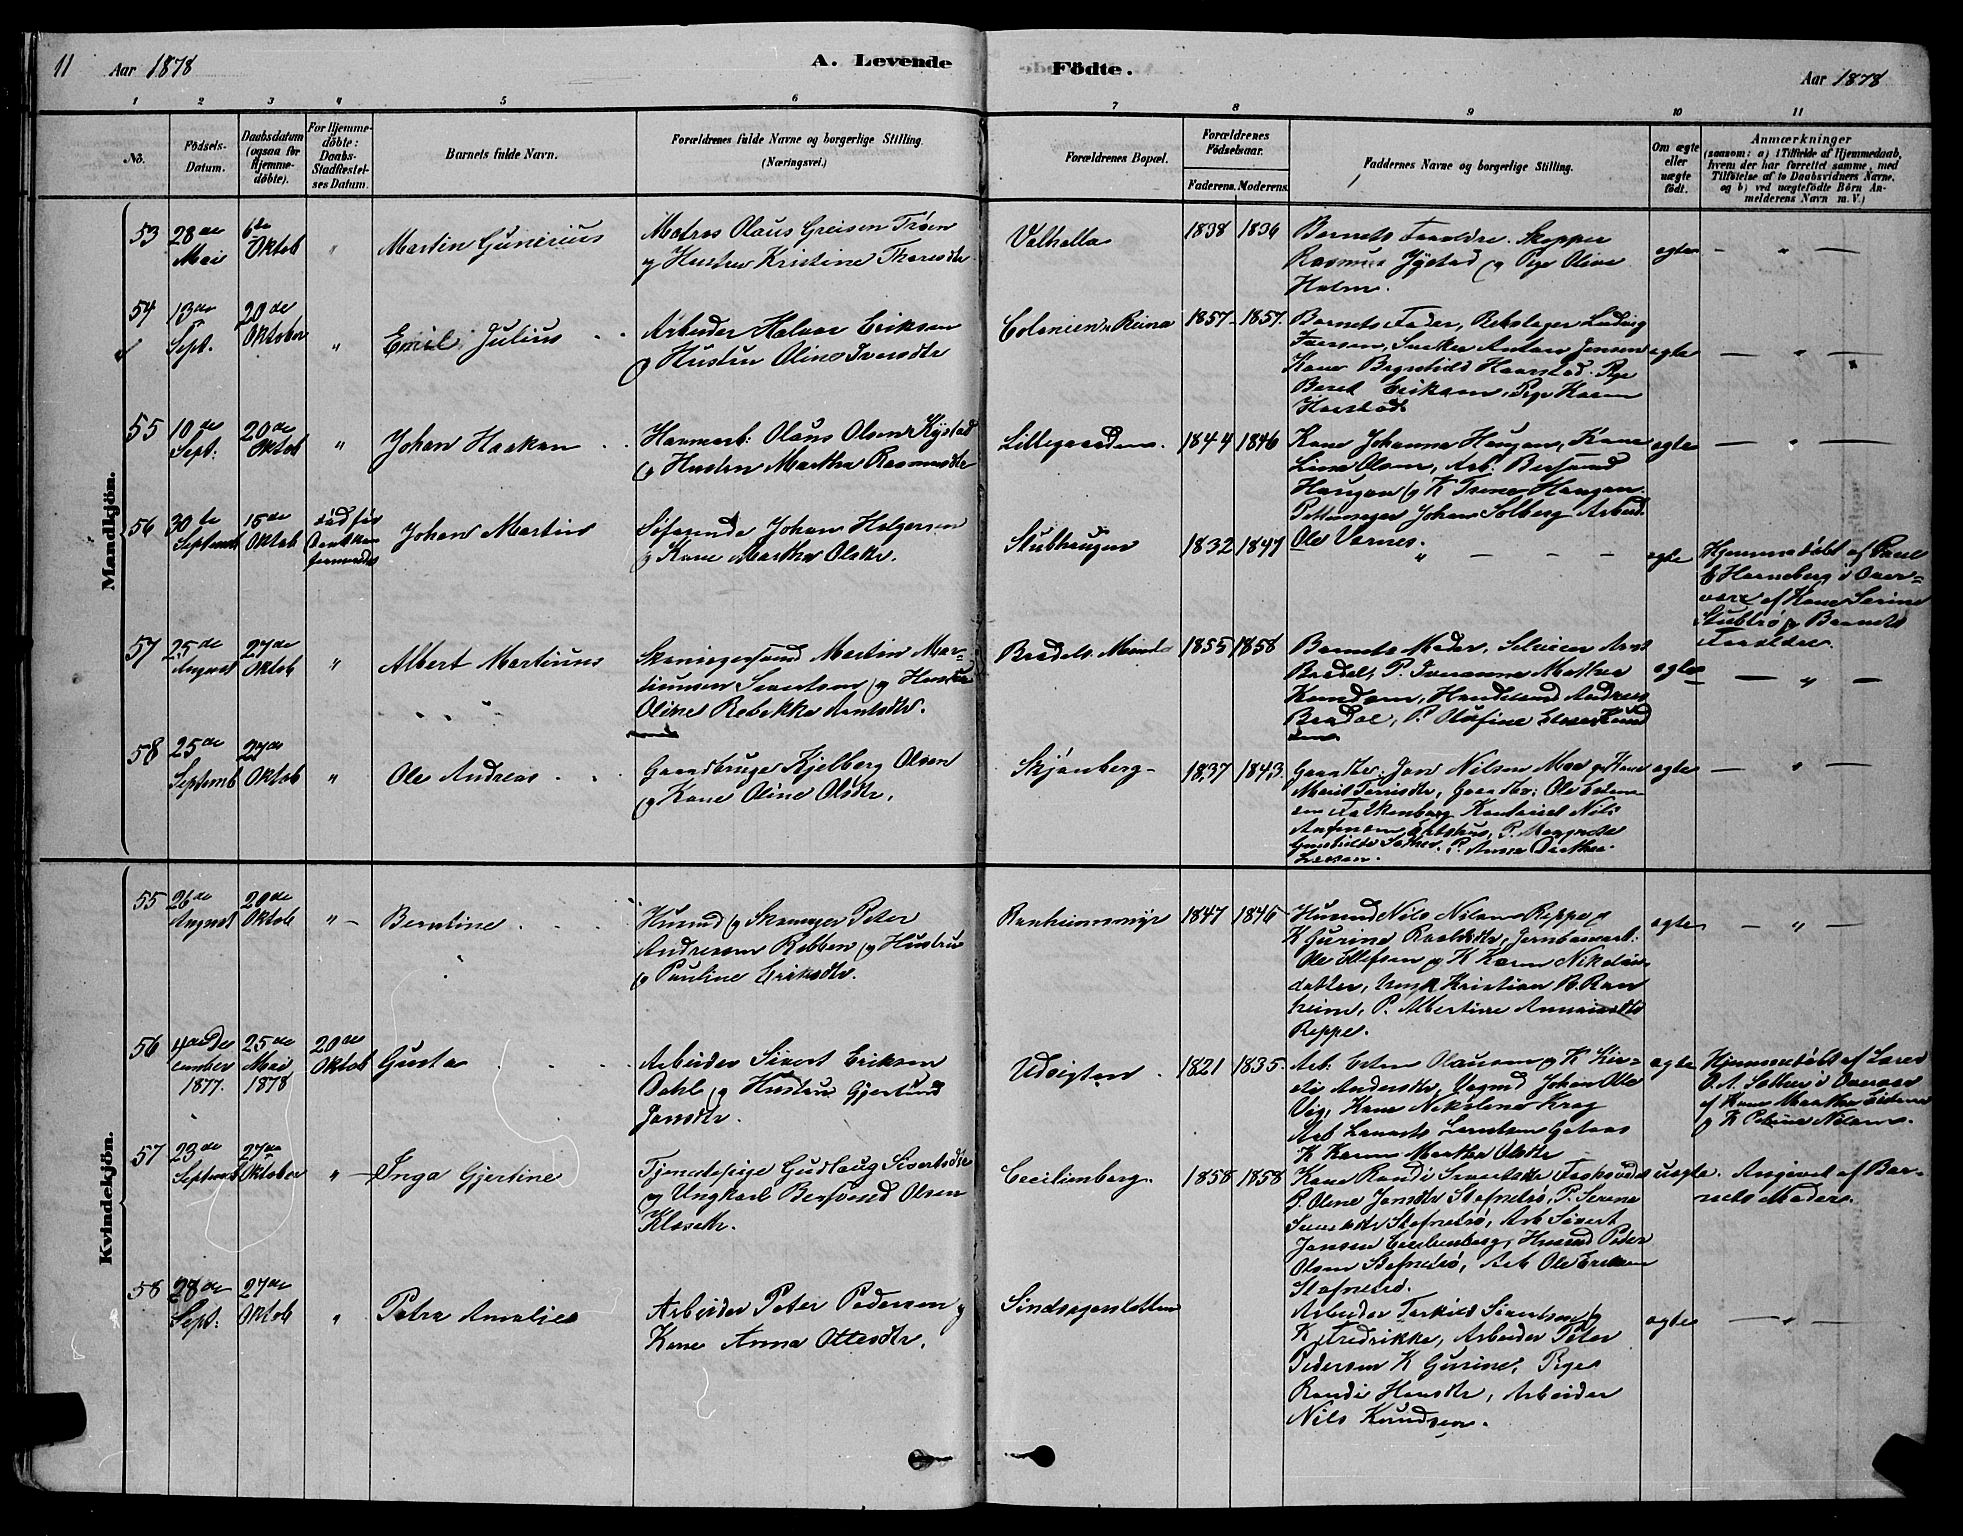 11 Aar 1878 A. Levende Fødte. Aar 1878
1 2 3 4 5 6 7 8 9 10 11
No.
Fødsels-Datum.
Daabsdatum (ogsaa for Hjemme-døbte).
For Hjemme-døbte: Daabs-Stadfæstel-ses Datum.
Barnets fulde Navn.
Forældrenes fulde Navne og borgerlige Stilling. (Næringsvei.)
Forældrenes Bopæl.
Forældrenes Fødselsaar.
Faderens. Moderens.
Faddernes Navne og borgerlige Stilling.
Om ægte eller uægte født.
Anmærkninger
(saasom: a) i Tilfælde af Hjemmedaab,
hvem der har forrettet samme, med
Tilføielse af to Daabsvidners Navne,
og b) ved uægtefødte Børn An-
melderens Navn m. V.)
Mandkjön.
53 28de Mai 6te Oktob " Martin Gunerius
Matros Olaus Greisen Trøen
og Hustru Kristine Thoresdtr
Valhalla 1838 1836
Barnets Forældre. Skipper
Rasmus Jystad og Pige Oline
Holm.
ægte — " —
54 13de Sept. 20de Oktober " Emil Julius
Arbeider Halvor Eriksen
og Hustru Oline Iversdtr
Colonien Reina 1857 1857.
Barnets Fader, Rebslager Ludvig
Iversen, Snekker Anton Jensen
Kone Bergitte Haarstad. Pige
Beret Eriksen, Pige Karen
Haarstad
ægte — " —
55 10de Sept: 20de Oktob " Johan Haakon
Havnearb: Olaus Olsen Kystad
og Hustru Martha Rasmusdtr
Lillegaarden. 1844 1846
Kone Johanna Haugan, Kone
Lina Olsen, Arb: Bersvend
Haugan og K Trine Haugan
Pottemager Johan Solberg Arbeid.
Ole Vernes.
ægte — " —
56 30te Septemb 15de Oktob Johan Martin
Søfarende Johan Holgersen
og Kone Martha Olsdtr.
Stubhaugen 1832 1847
" — — — —
ægte Hjemmedøbt af Paul
E Horneberg i Over-
være af Kone Serine
Stubbrø og Barnets
Forældre.
57 25de August 27de Oktob " Albert Martinus
Skomagersvend Martin Mar-
tinusen Sivertsen og Hustru
Oline Rebekka Arntsdtr.
Bradals Minde 1855 1858
Barnets Moder, Selveier Arnt
Bradal, P. Ivaranna Mathea
Knudsen, Handelsmd Andreas
Bradal, P. Olufine Knud
sen
ægte — " —
58 25de Septemb 27de Oktob " Ole Andreas
Gaardbruger Kjelberg Olsen
og Kone Oline Olsdtr.
Skjønberg 1837 1843.
Gaardbr. Jon Nilsen Moe og Kone
Marit Tørrisdtr, Gaardbr: Ole
Falkenborg Kontorist Nils
P. Margrethe
P. Anna Dorthea
Larsen.
ægte — " —
Kvindekjön.
55 26de August 20de Oktob " — Berntine
Husmd og Skomager Peter
Andreasen Rabben og Hustru
og Pauline Eriksdtr.
Ranheimsmyr 1847 1846
Husmd Nils Nilsen Reppe og
K Gurine Roaldsdtr, Jernbanearb:
Ole Ellefsen og K Karen Nikolais
datter, Ungk Kristian B. Ran
heim, P. Albertine
Reppe.
ægte — " —
56 4de Dec ember 1877. 25de Mai 1878 20de Oktob Gusta
Arbeider Sivert Eriksen
Dahl og Hustru Gjertrud
Jonsdtr.
Udsigten. 1821 1835.
Arb: Olausen og K
Andersdtr, Vognmd Johan Ole
Vig, Kone Nikoline Krog
Arb
K Karen Martha Olsdtr
ægte Hjemmedøbt af Lærer
O. A. Sæther i Overvær
af Kone Martha
og K Petrine Nilsen.
57 23de Septemb 27de Oktober " — Inga Gjertine
Tjenestepige Gudlaug Sivertsdtr
og Ungkarl Bersvend Olsen
Klosettr.
Cecilienborg. 1858 1858
Kone Randi Sivertsdtr
P. Oline Jonsdtr Stofnetrø, P. Serena
Stofnetrø, Arb Sivert
Jensen Cecilienborg, Husmd Peder
Olsen Stofnetrø, Arb Ole Eriksen
Stofnetrø.
uægte. Angivet af Bar-
nets Moder.
58 28de Sept: 27de Oktob " Petra Amalie
Arbeider Peter Pedersen og
Kone Anna Ottesdtr.
Sindssygeslotten
Arbeider Torkild Sivertsen og
K Fredrikke, Arbeider Peter
Pedersen K Gurine, Pige
Randi Hansdtr, Arbeider
Nils Knudsen.
ægte — " —